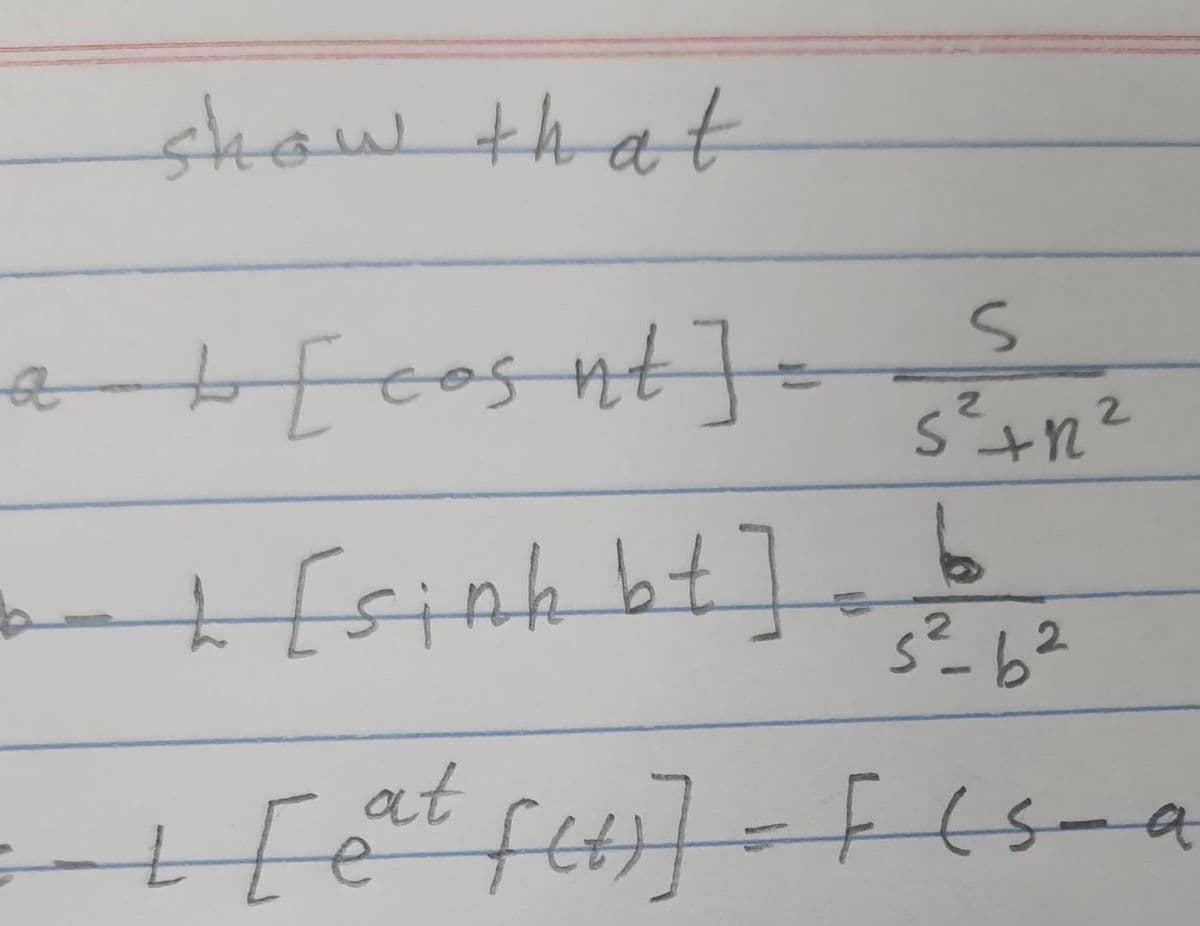 show that
a - L [ cos nt ] = s / s² + n²
b - L [ sinh bt ] = b / s² - b²
- L [ e^at f(t) ] = F ( s - a